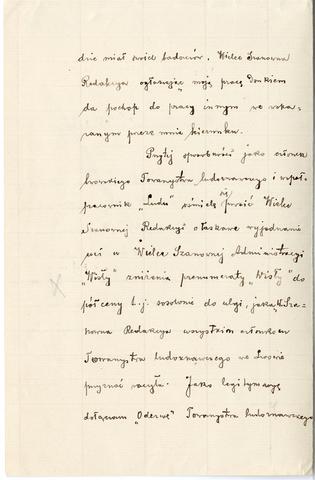 dzie miał swoich badaczów. Wielce Szanowna
Redakcya ogłaszając moją pracę drukiem
da pochop do pracy innym we wska-
zanym przeze mnie kierunku.
Przytej sposobności jako członek
lwowskiego Towarzystwa ludoznawczego i współ-
pracownik "Ludu" ośmielę się prosić Wielce
Szanownej Redakcyi o łaskawe wyjednanie
mi w Wielce Szanownej Administracyi
"Wisły" zniżenia prenumeraty "Wisły" do
pół ceny t. j. stosownie do ulgi, jaką W. Sza-
nowna Redakcya wszystkim członkom
Towarzystwa ludoznawczego we Lwowie
przyznać raczyła. Jako legitymacyę
dołączam "Odezwę" Towarzystwa ludoznawczego